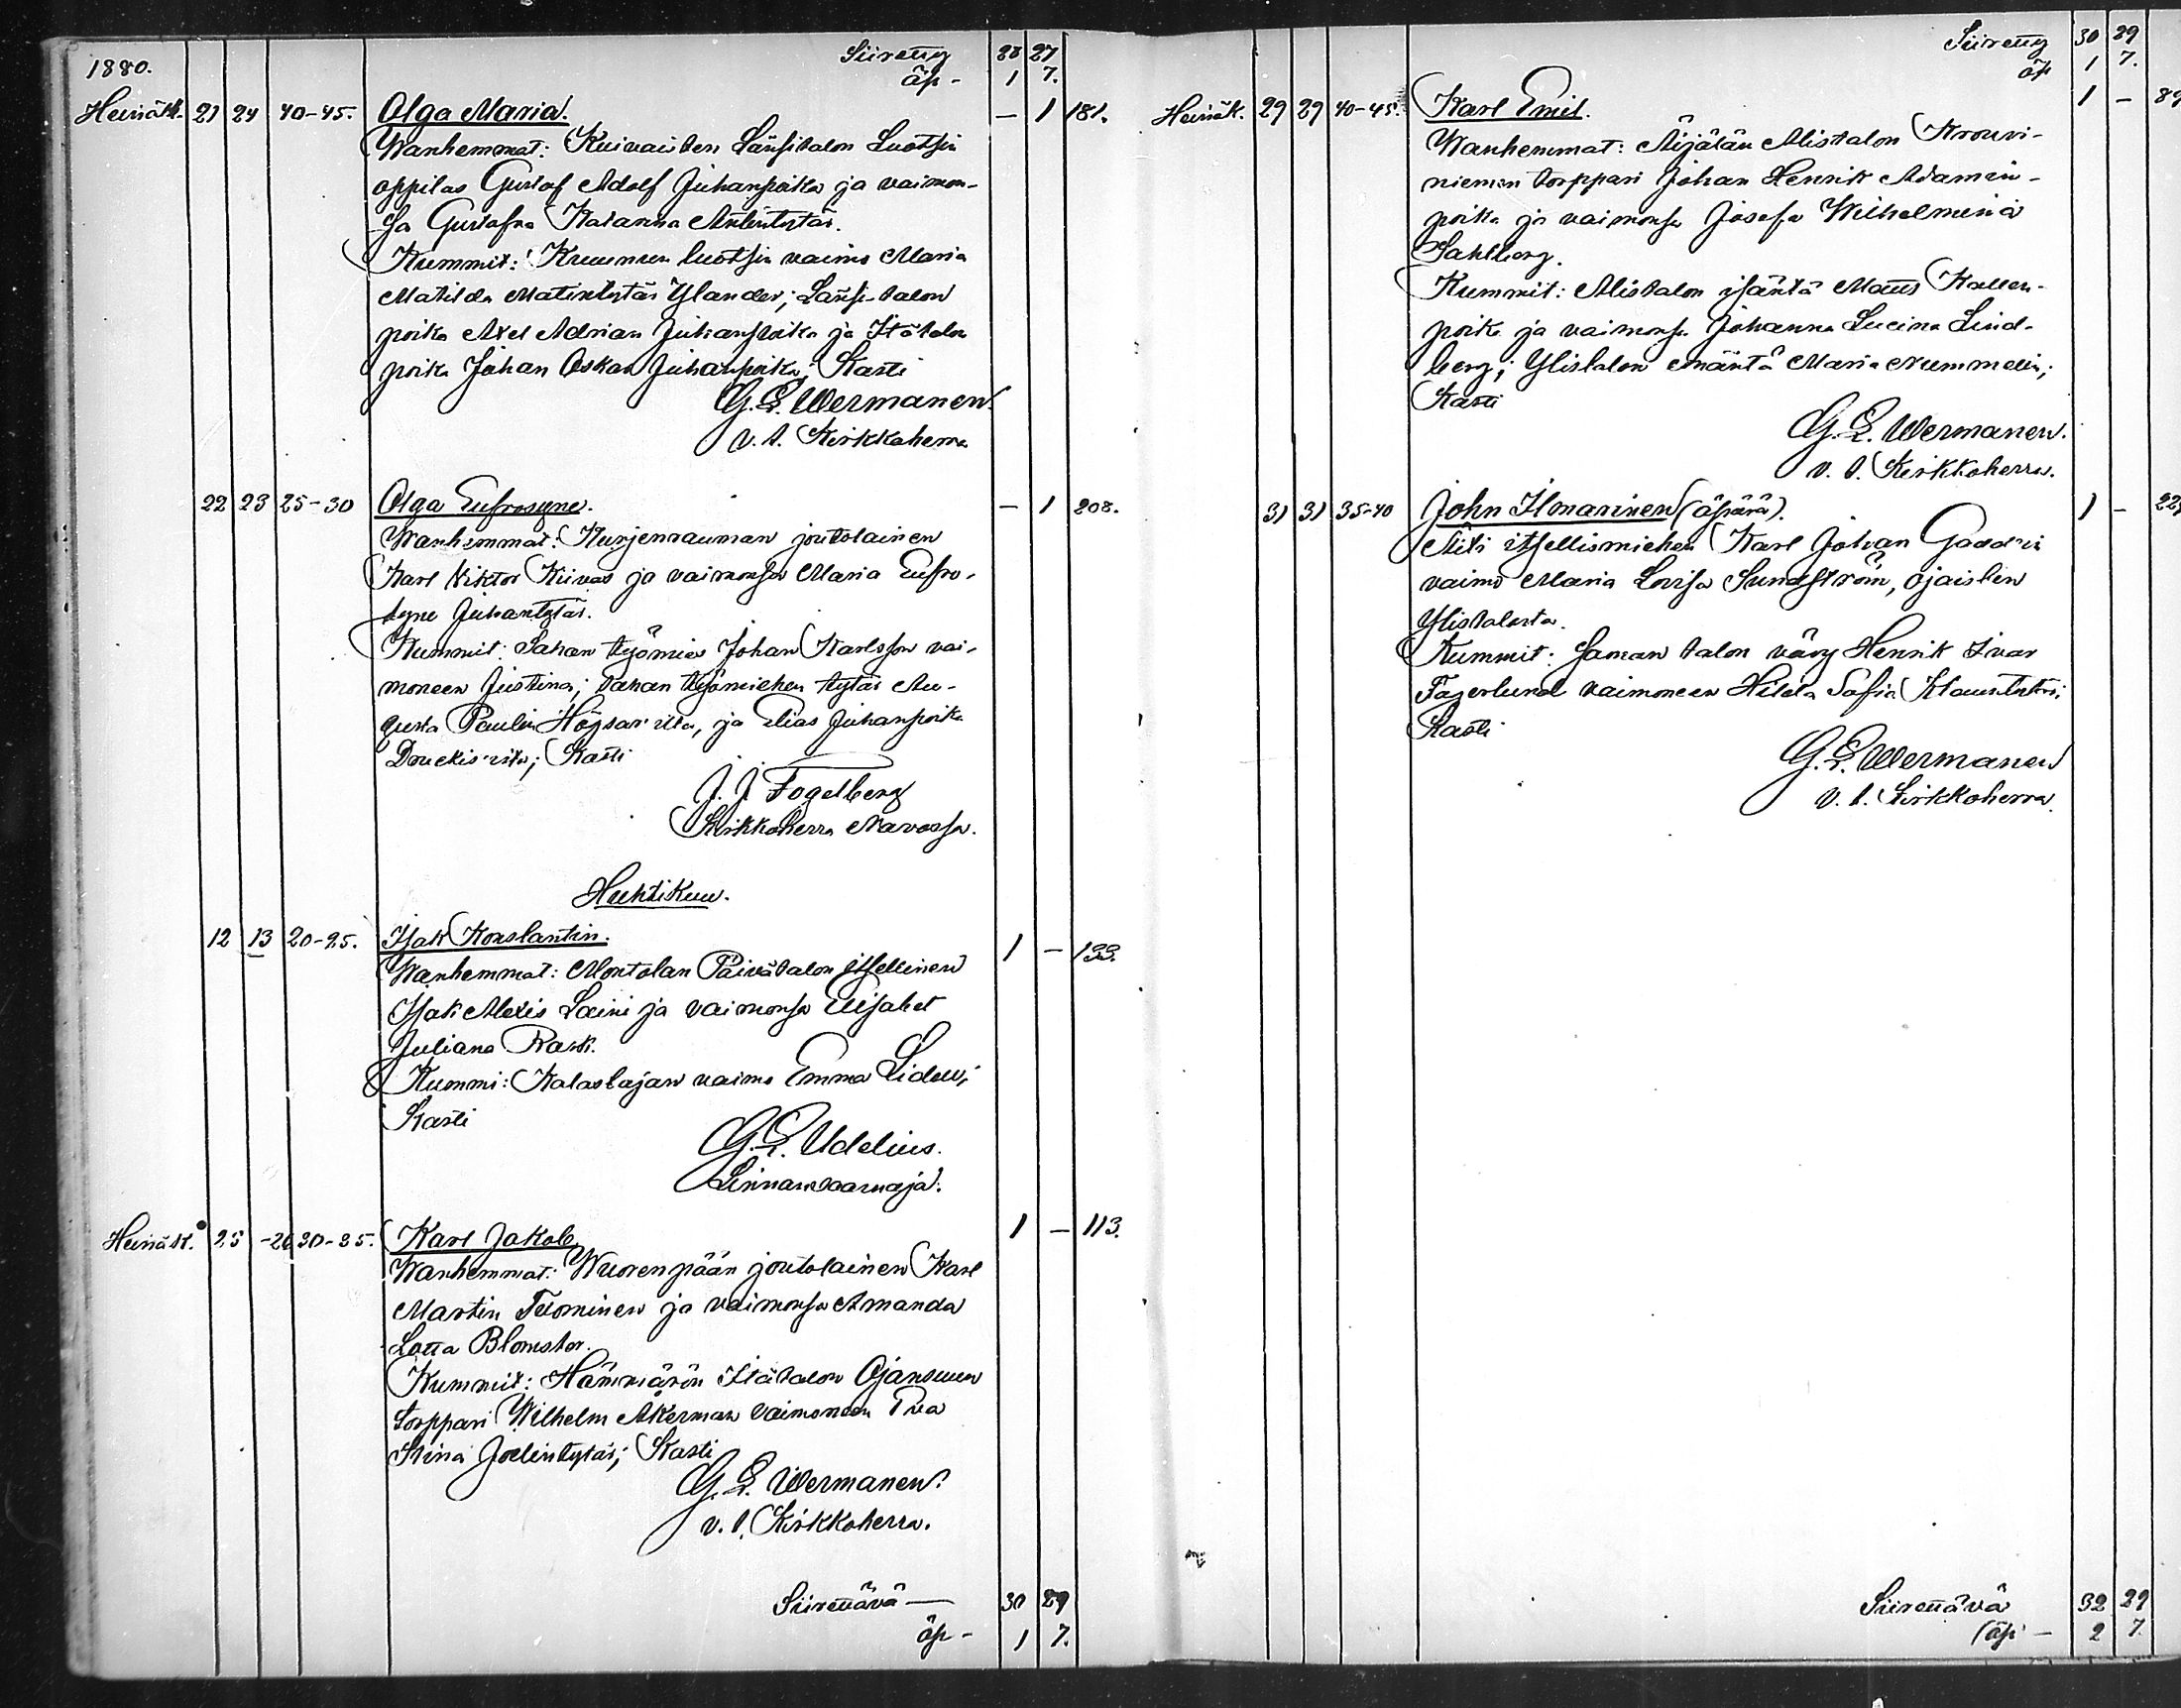 1880.
Siirretty 28 27
äp - 1 7.
Heinäk. 21 24 40-45. Olga Maria. — 1 181.
Wanhemmat: Kuivaisten Länsitalon Luotsin
oppilas Gustaf Adolf Juhanpoika ja vaimon-
sa Gustafva Katariina Antintytär.
Kummit: Kruunun luotsin vaimo Maria
Matilda Matintytär Ylander; Länsi-talon
poika Axel Adrian Juhanpoika ja Itätalon
poika Johan Oskar Juhanpoika; Kasti
G. E. Wermanen.
v. t. Kirkkoherra
22 23 25-30 Olga Eufrosyne. — 1 208.
Wanhemmat: Kurjenrauman joutolainen
Karl Viktor Kiivas ja vaimonsa Maria Eufro-
syne Juhantytär.
Kummit: Sahan työmies Johan Karlsson vai-
moneen Justina; Sahan työmiehen tytär Au-
gusta Paulin Högsar'ilta, ja Elias Juhanpoika
Druckis'ista; Kasti
J. J. Fogelberg
Kirkkoherra Navossa.
Huhtikuu.
12 13 20-25. Isak Konstantin. 1 — 133.
Wanhemmat: Montolan Päivätalon itsellinen
Isak Alexis Laini ja vaimonsa Elisabet
Juliana Rask.
Kummi: Kalastajan vaimo Emma Lidell;
Kasti
G. E. Udelius.
Linnansaarnaja.
Heinäk. 25 -26 30-35. Karl Jakob. 1 — 113.
Wanhemmat: Wuorenpään joutolainen Karl
Martin Tuominen ja vaimonsa Amanda
Lotta Blomster.
Kummit: Hämmärön Itätalon Ojansuun
torppari Wilhelm Åkerman vaimoneen Eva
Stina Joelintytär; Kasti
G. E. Wermanen.
v. t. Kirkkoherra.
Siirrettävä — 30 29
äp - 1 7.
Siirretty 30 29
äp 1 7.
Heinäk. 29 29 40-45. Karl Emil. 1 —
Wanhemmat: Äijälän Alistalon Krouvi-
niemen torppari Johan Henrik Adamin-
poika ja vaimonsa Josefa Wilhelmina
Sahlberg.
Kummit: Alistalon isäntä Matts Kallen-
poika ja vaimonsa Johanna Lucina Lind-
berg; Ylistalon emäntä Maria Nummelin;
Kasti
G. E. Wermanen.
v. t. Kirkkoherra.
31 31 35-40 John Ilmarinen (äpärä). 1 —
Äiti itsellismiehen Karl Johan Gadd'in
vaimo Maria Lovisa Sundström, Ojaisten
Ylistalosta.
Kummit: Saman talon vävy Henrik Ivar
Fagerlund vaimoneen Hilda Sofia Klauntytär;
Kasti
G. E. Wermanen
v. t. Kirkkoherra.
Siirrettävä 32 29
(äp - 2 7.